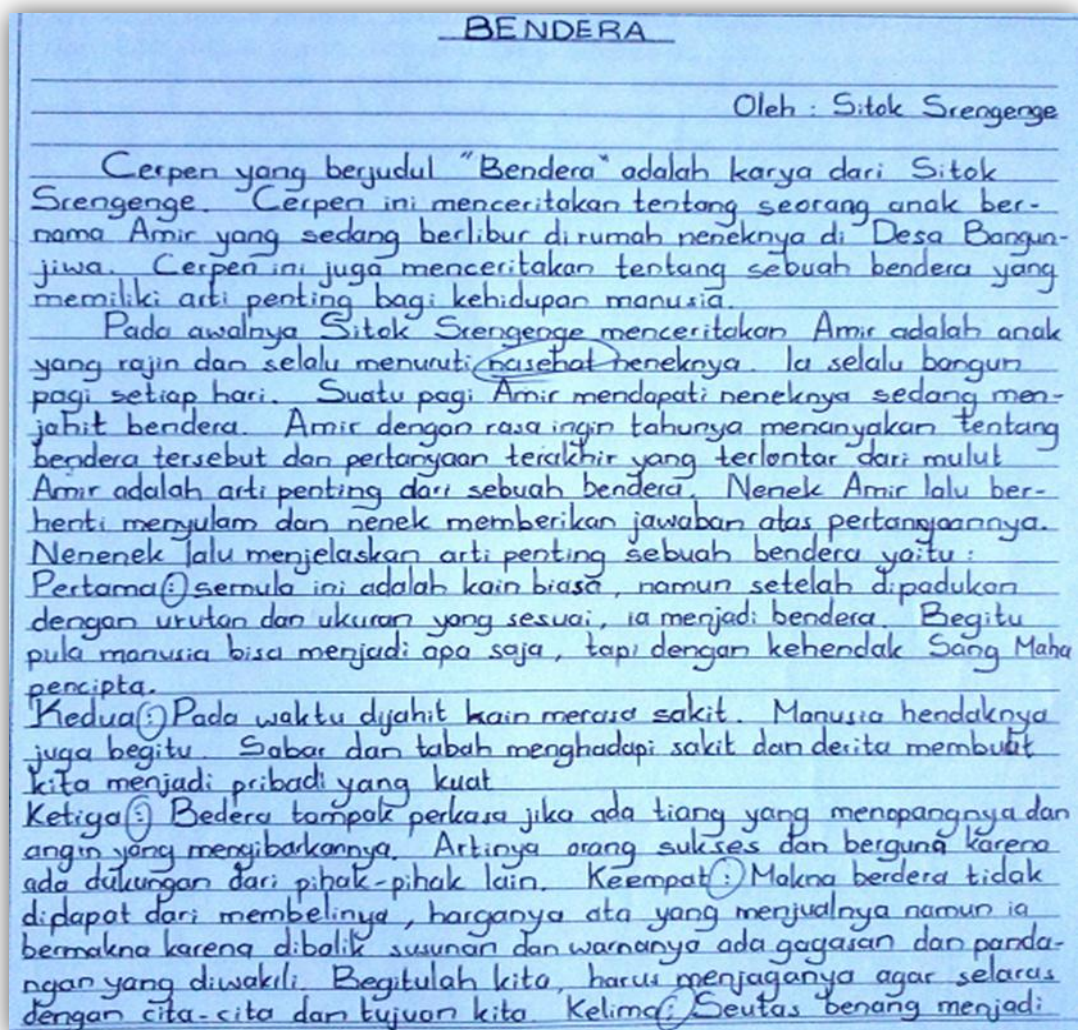 BENDERA
Oleh : Sitok Srengenge
Cerpen yang berjudul "Bendera" adalah karya dari Sitok
Srengenge. Cerpen ini menceritakan tentang seorang anak ber-
nama Amir yang sedang berlibur dirumah neneknya di Desa Bangun-
jiwa. Cerpen ini juga menceritakan tentang sebuah bendera yang
memiliki arti penting bagi kehidupan manusia.
Pada awalnya Sitok Srengenge menceritakan Amir adalah anak
yang rajin dan selalu menuruti nasehat neneknya. Ia selalu bangun
pagi setiap hari. Suatu pagi Amir mendapati neneknya sedang men-
jahit bendera. Amir dengan rasa ingin tahunya menanyakan tentang
bendera tersebut dan pertanyaan terakhir yang terlontar dari mulut
Amir adalah arti penting dari sebuah bendera. Nenek Amir lalu ber-
henti menyulam dan nenek memberikan jawaban atas pertanyaannya.
Nenenek lalu menjelaskan arti penting sebuah bendera yaitu :
Pertama : semula ini adalah kain biasa, namun setelah dipadukan
dengan urutan dan ukuran yang sesuai, ia menjadi bendera. Begitu
pula manusia bisa menjadi apa saja, tapi dengan kehendak Sang Maha
pencipta.
Kedua : Pada waktu dijahit kain merasa sakit. Manusia hendaknya
juga begitu. Sabar dan tabah menghadapi sakit dan derita membuat
kita menjadi pribadi yang kuat
Ketiga : Bedera tampak perkasa jika ada tiang yang menopangnya dan
angin yang mengibarkannya. Artinya orang sukses dan berguna karena
ada dukungan dari pihak-pihak lain. Keempat : Makna berdera tidak
didapat dari membelinya, harganya ata yang menjualnya namun ia
bermakna karena dibalik susunan dan warnanya ada gagasan dan panda-
ngan yang diwakili. Begitulah kita, harus menjaganya agar selaras
dengan cita-cita dan tujuan kita. Kelima : Seutas benang menjadi